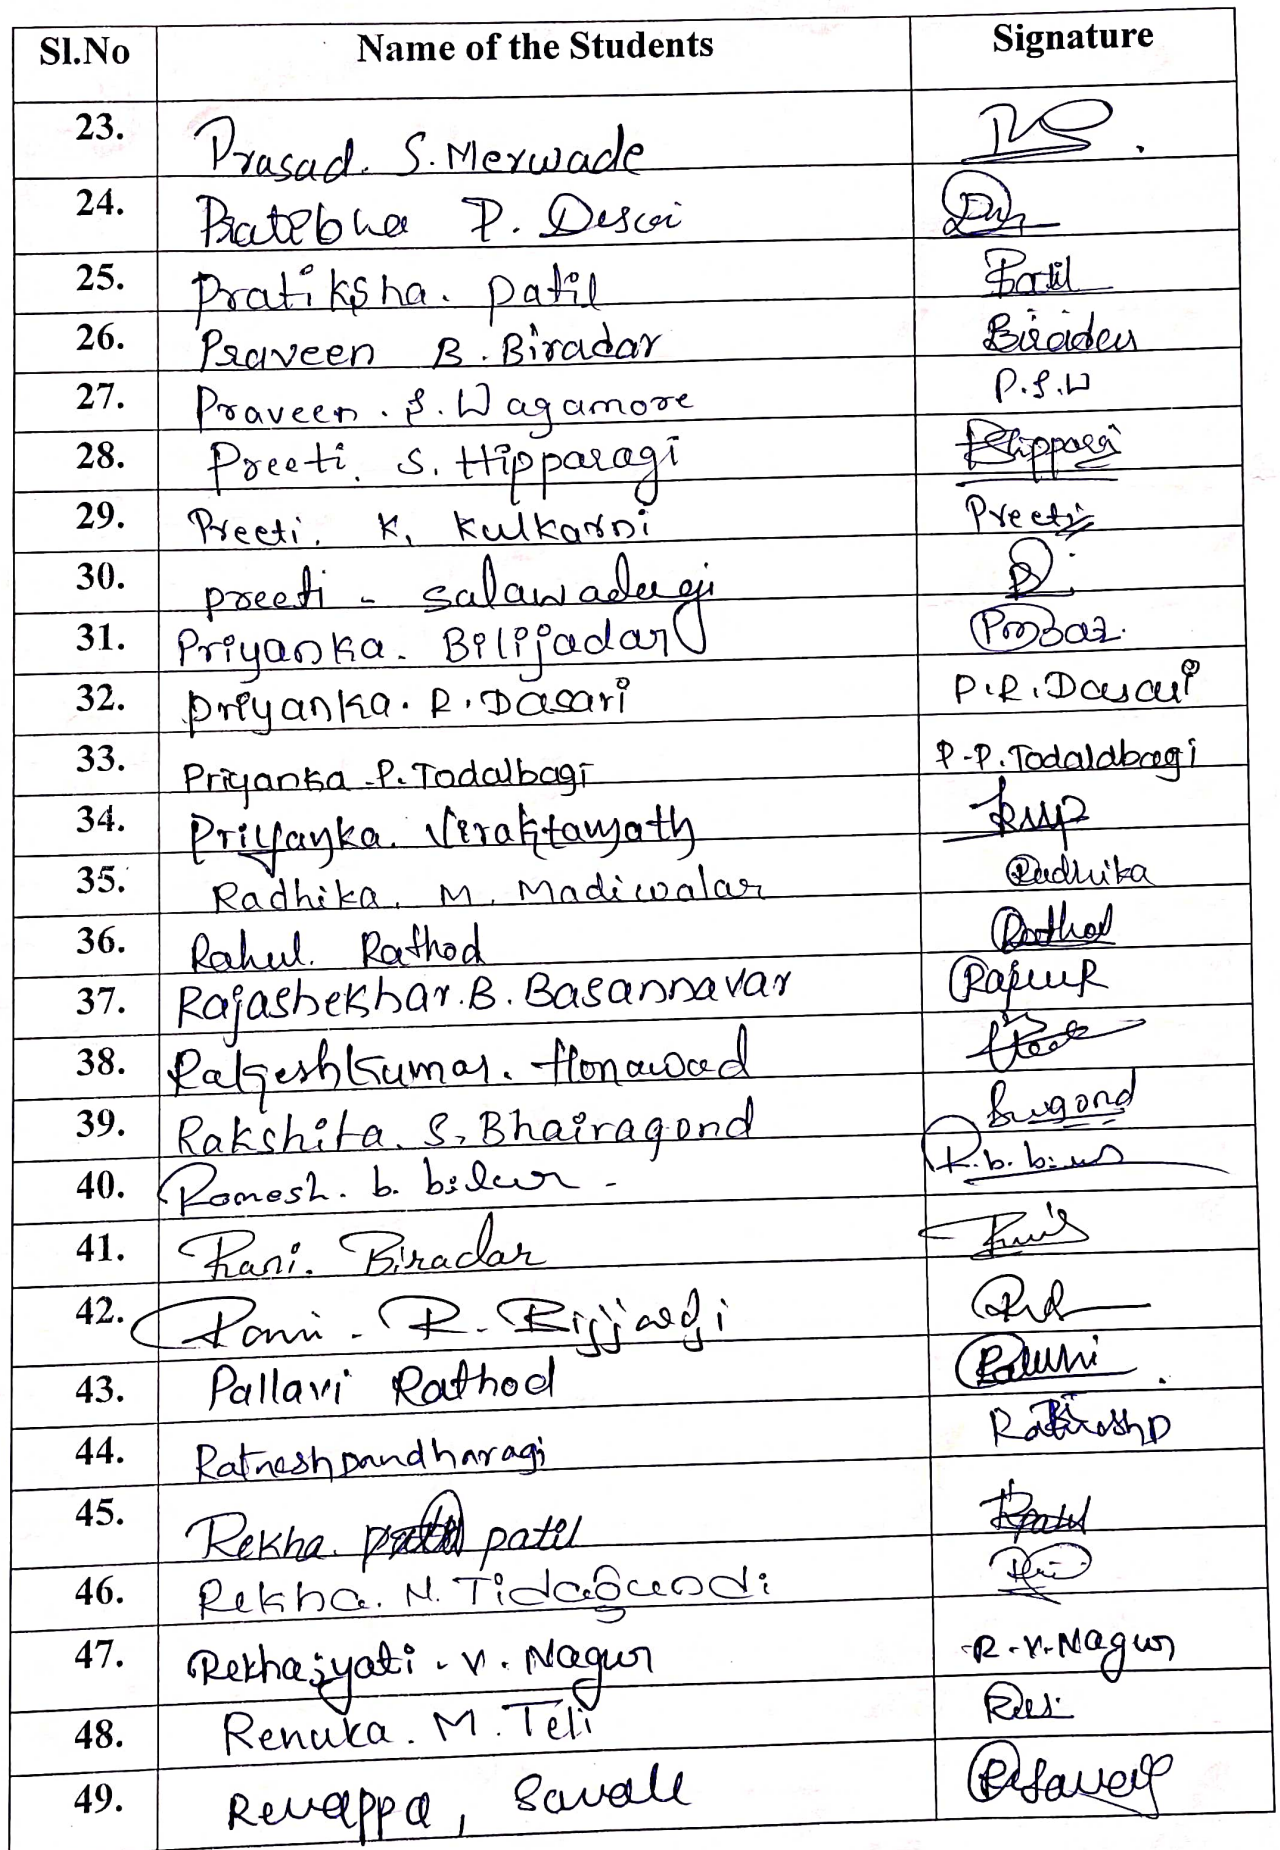 Sl.No Name of the Students Signature
23. Prasad. S. Merwade
24. Pratebha P. Desai
25. Pratiksha. patil Patil
26. Praveen B. Biradar Biradar
27. Praveen. S. Wagamore P.S.W
28. Preeti. S. Hipparagi
29. Preeti. K. Kulkarni Preeti
30. preeti - salawadagi
31. Priyanka. Bilijadar
32. priyanka. R. Dasari P.R. Dasari
33. Priyanka .P. Todalbagi P.P. Todaldbagi
34. Priyanka. Viraktamath
35. Radhika. M. Madiwalar Radhika
36. Rahul. Rathod Rathod
37. Rajashekhar. B. Basannavar
38. Rakeshkumar. Honawad
39. Rakshita. S. Bhairagond
40. Ramesh. b. bilur -
41. Rani. Biradar
42. Rani - R. Bijjaragi
43. Pallavi Rathod
44. Ratnesh pandharagi
45. Rekha. patil Rpatil
46. Rekha. N. Tidagundi
47. Rekhajyati. V. Nagur R.V. Nagur
48. Renuka. M. Teli
49. Revappa, Savale